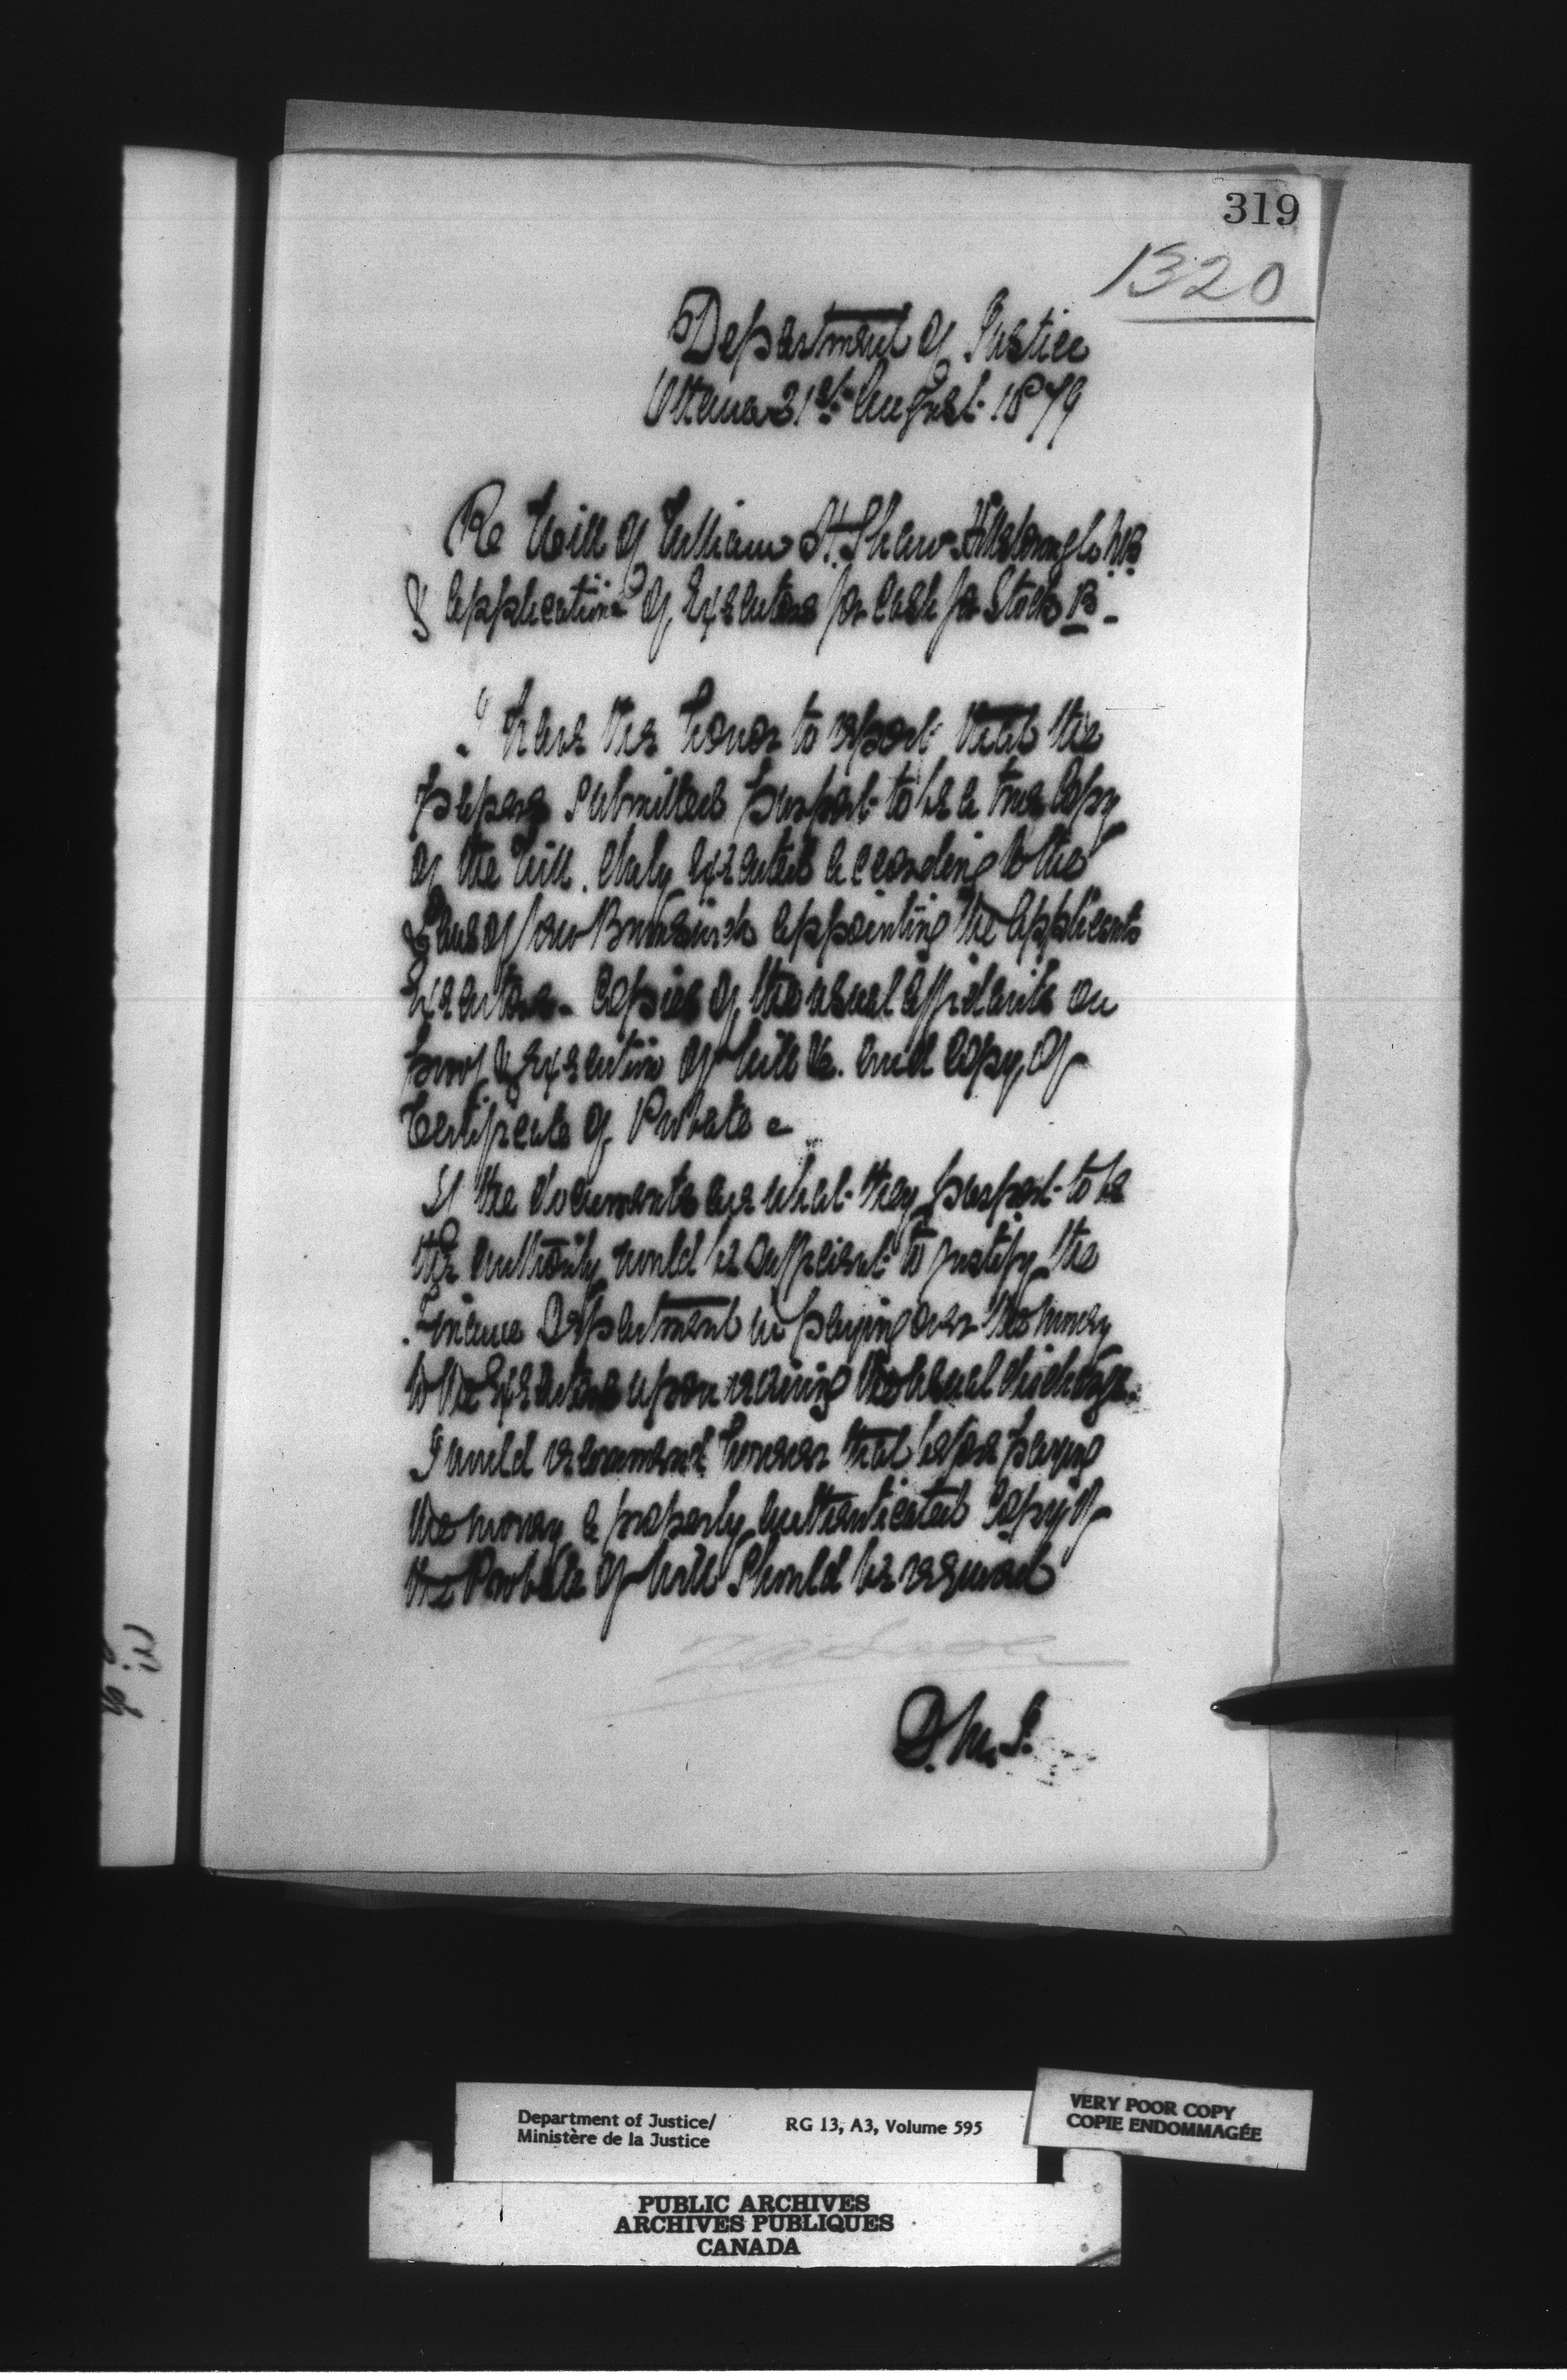 319
1320
Department of Justice
Ottawa 21st August 1879
Re Will of William H. Shaw Hillsborough N.B.
& application of Executors for Cash for Stock B -
I have the honor to report that the
papers submitted purport to be a true Copy
of the Will. duly executed according to the
Laws of New Brunswick appointing the Applicants
Executors - Copies of the usual affidavits on
proof of Execution of Will &c. and Copy of
Certificate of Probate -
If the documents are what they purport to be
the authority would be sufficient to justify the
Finance Department in paying over the money
to the Executors upon receiving the usual discharge.
I would recommend however that before paying
the money a properly authenticated Copy of
the Probate of Will should be required
D.M.J.
Department of Justice/
Ministère de la Justice
RG 13, A3, Volume 595
VERY POOR COPY
COPIE ENDOMMAGÉE
PUBLIC ARCHIVES
ARCHIVES PUBLIQUES
CANADA